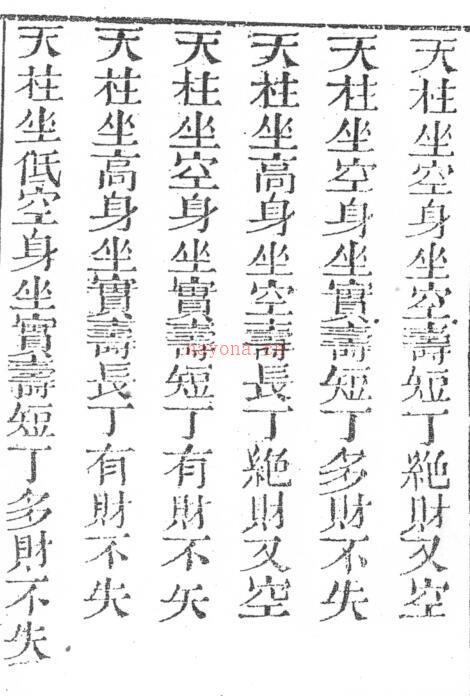 天柱坐空身坐空壽短丁絶財又空
天柱坐空身坐實壽短丁多財不失
天柱坐高身坐空壽長丁絶財又空
天柱坐空身坐實壽短丁有財不矢
天柱坐高身坐實壽長丁有財不失
天柱坐低空身坐實壽短丁多財不失
nayona.cn